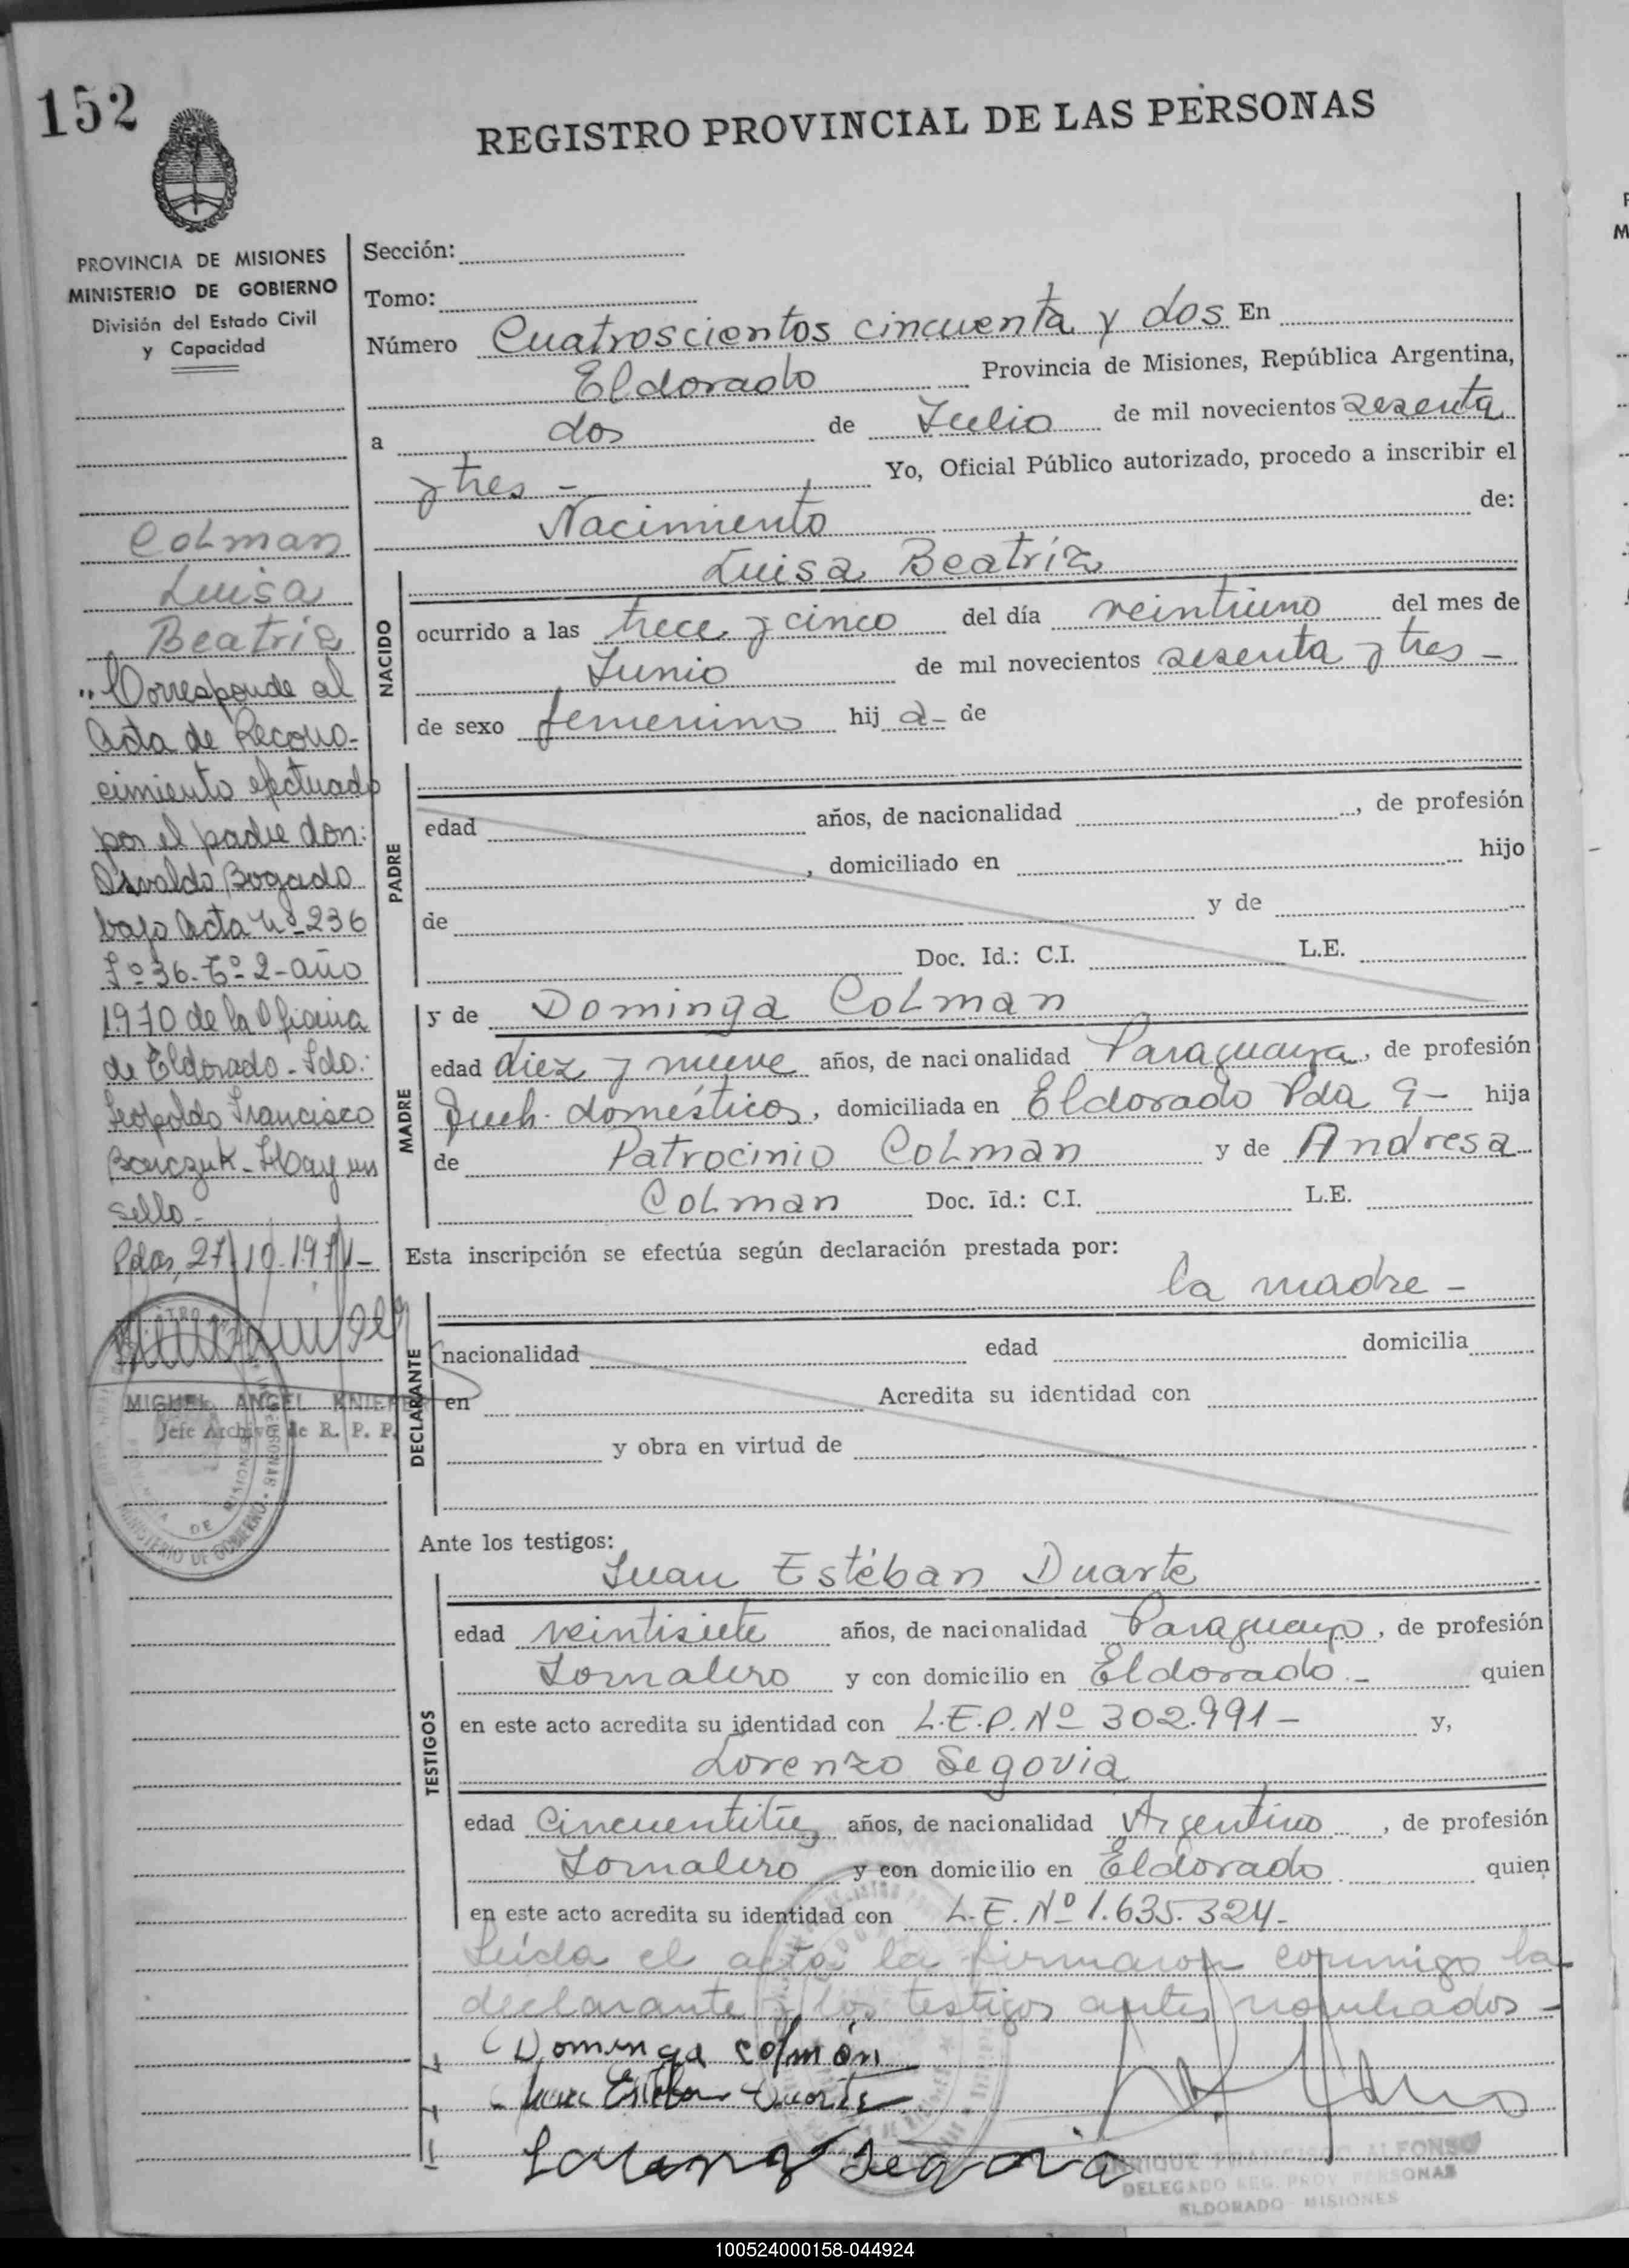 152
REGISTRO PROVINCIAL DE LAS PERSONAS
PROVINCIA DE MISIONES
MINISTERIO DE GOBIERNO
División del Estado Civil
y Capacidad
Colman
Luisa
Beatriz
"Corresponde al
Acta de Recono-
cimiento efectuado
por el padre don:
Osvaldo Bogado
bajo Acta Nº 236
Fº 36-Tº 2-año
1970 de la Oficina
de Eldorado-Fdo:
Leopoldo Francisco
Hay un
sello-
Pdas, 27-10-1971-
MIGUEL ANGEL KNIEPER
Jefe Archivo de R. P. P.
Sección:
Tomo:
Número Cuatroscientos cincuenta y dos En
Eldorado Provincia de Misiones, República Argentina,
a dos de Julio de mil novecientos sesenta
y tres - Yo, Oficial Público autorizado, procedo a inscribir el
Nacimiento de:
Luisa Beatriz
NACIDO
ocurrido a las trece y cinco del día veintiuno del mes de
Junio de mil novecientos sesenta y tres -
de sexo femenino hij a- de
PADRE
edad años, de nacionalidad , de profesión
, domiciliado en hijo
de y de
Doc. Id.: C.I. L.E.
MADRE
y de Dominga Colman
edad diez y nueve años, de nacionalidad Paraguaya, de profesión
Queh. domésticos, domiciliada en Eldorado Pda 9- hija
de Patrocinio Colman y de Andresa
Colman Doc. Id.: C.I. L.E.
Esta inscripción se efectúa según declaración prestada por:
la madre -
DECLARANTE
nacionalidad edad domicilia
en Acredita su identidad con
y obra en virtud de
Ante los testigos:
Juan Estéban Duarte
TESTIGOS
edad veintisiete años, de nacionalidad Paraguayo, de profesión
Jornalero y con domicilio en Eldorado.- quien
en este acto acredita su identidad con L.E.P. Nº 302.991- y,
Lorenzo Segovia
edad Cincuentitres años, de nacionalidad Argentino, de profesión
Jornalero y con domicilio en Eldorado quien
en este acto acredita su identidad con L.E. Nº 1.635.324-
Leída el acta la firmaron conmigo la
declarante y los testigos antes nombrados-
Dominga Colmán
Juan Esteban Duarte
Lorenzo Segovia
ENRIQUE FRANCISCO ALFONSO
DELEGADO REG. PROV PERSONAS
ELDORADO - MISIONES
100524000158-044924